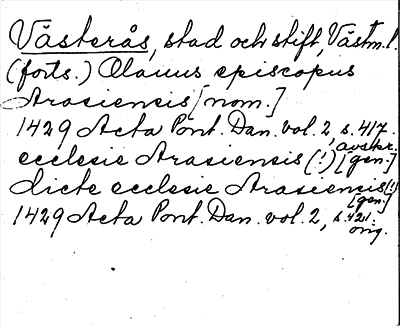 Västerås, stad och stift, Västm.l.
(forts.) Olauus episcopus
Arasiensis [nom.]
1429 Acta Pont. Dan. vol. 2, s. 417.
avskr.
ecclesie Arasiensis (!) [gen.]
dicte ecclesie Arasiensis (!)
[gen.]
1429 Acta Pont. Dan. vol. 2, s. 421.
orig.